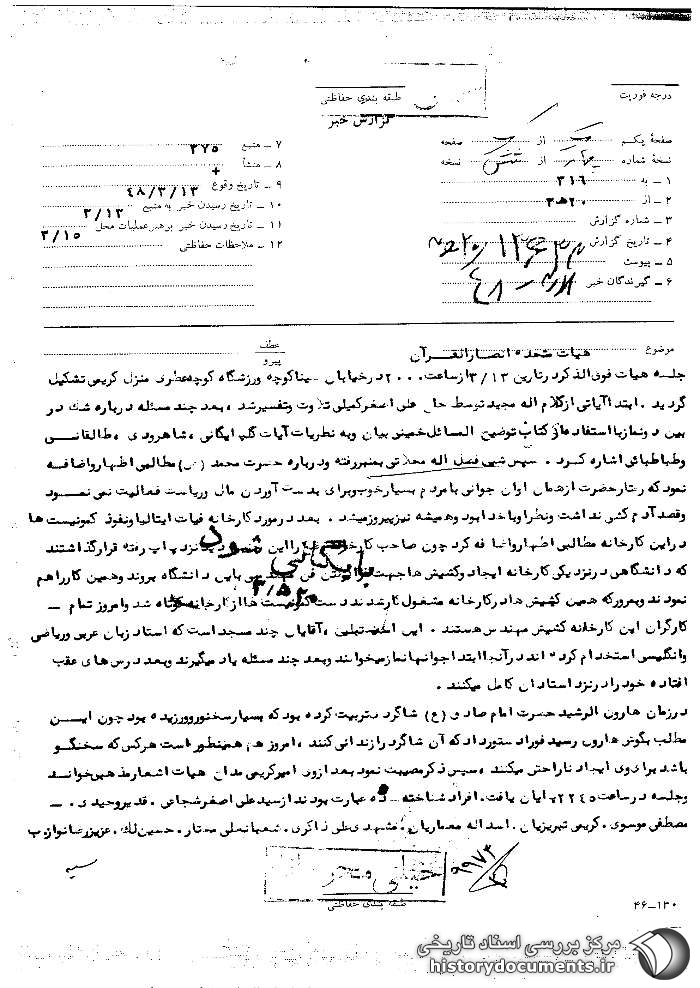 درجه فوریت
طبقه بندی حفاظتی
گزارش خبر
صفحهٔ یکم از صفحه
نسخهٔ شماره چهار از شش نسخه
۱ – به ۳۱۶
۲ – از ۲۰ ه ۳
۳ – شماره گزارش
۴ – تاریخ گزارش
۵ – پیوست
۶ – گیرندگان خبر
۷ – منبع ۲۷۵
۸ – منشأ +
۹ – تاریخ وقوع ۴۸/۳/۱۳
۱۰ – تاریخ رسیدن خبر به منبع ۳/۱۳
۱۱ – تاریخ رسیدن خبر برهبر عملیات محل ۳/۱۵
۱۲ – ملاحظات حفاظتی
موضوع هیات متحده انصارالقرآن
عطف
پیرو
جلسه هیات فوق الذکر در تاریخ ۳/۱۳ از ساعت ۲۰۰۰ در خیابان سینا کوچه ورزشگاه کوچه عطری منزل کریمی تشکیل
گردید . ابتدا آیاتی از کلام اله مجید توسط حاج علی اصغر کمیلی تلاوت و تفسیر شد ، بعد چند مسئله درباره شک در
بین دو نماز با استفاده از کتاب توضیح المسائل خمینی بیان و به نظریات آیات گلپایگانی ، شاهرودی ، طالقانی
و طباطبائی اشاره کرد . سپس شیخ فضل اله محلاتی بمنبر رفته و درباره حضرت محمد (ص) مطالبی اظهار و اضافه
نمود که رفتار حضرت از همان اوان جوانی با مردم بسیار خوب و برای بدست آوردن مال و ریاست فعالیت نمی نمود
و قصد آدم کشی نداشت و نظر او با خدا بود و همیشه نیز پیروز میشد . بعد در مورد کارخانه فیات ایتالیا و نفوذ کمونیست ها
در این کارخانه مطالبی اظهار و اضافه کرد چون صاحب کارخانه نزد پاپ رفته قرار گذاشتند
که دانشگاهی در نزدیکی کارخانه ایجاد و کشیش ها جهت فن باین دانشگاه بروند و همین کار را هم
نمودند و بمرور که همین کشیش ها در کارخانه مشغول کار شدند دست کمونیست ها از کارخانه کوتاه شد و امروز تمام –
کارگران این کارخانه کشیش مهندس هستند . این تبلیغ ، آقایان چند مسجد است که استاد زبان عربی و ریاضی
و انگلیسی استخدام کرده اند در آنجا ابتدا جوانها نماز میخوانند و بعد چند مسئله یاد میگیرند و بعد درس های عقب
افتاده خود را در نزد استادان کامل میکنند .
در زمان هارون الرشید حضرت امام صادق (ع) شاگرد تربیت کرده بود که بسیار سخنور و ورزیده بود چون این
مطلب بگوش هارون رسید فورا دستور داد که آن شاگرد را زندانی کنند ، امروز هم همینطور است هر کس که سخنگو
باشد برای وی ایجاد ناراحتی میکنند ، سپس ذکر مصیبت نمود بعد از وی امیر کریمی مداح هیات اشعار مذهبی خواند
و جلسه در ساعت ۲۲۴۵ پایان یافت . افراد شناخته شده عبارت بودند از سید علی اصغر شجاعی . قدیر وحیدی . –
مصطفی موسوی . کریمی تبریزیان . اسداله معماریان . مشهدی علی ذاکری . شعبانعلی مختار . حسین لک . عزیز رضا نواز ب
بایگانی شود
۳/۵۲۰
۹۹۷۳
خیلی محرمانه
طبقه بندی حفاظتی
۴۶–۱۳۰
مرکز بررسی اسناد تاریخی
historydocuments.ir